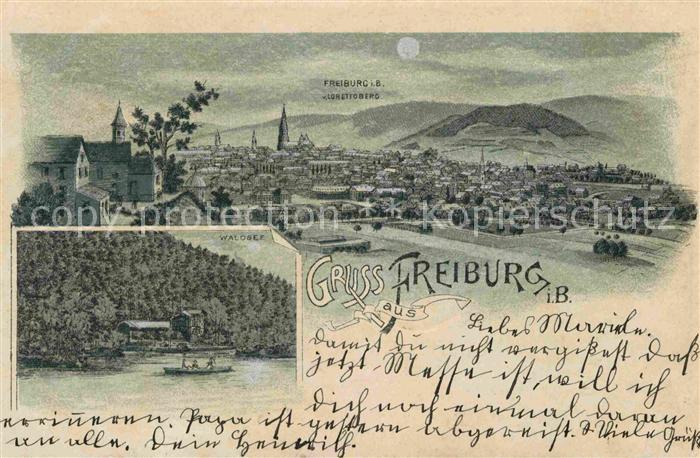 FREIBURG i.B.
v. LORETTOBERG.
copy protection · Kopierschutz
WALDSEE
GRUSS
aus
FREIBURG
i.B.
Liebes Mariele.
damit du nicht vergißest daß
jetzt Messe ist, will ich
dich noch einmal daran
erinneren. Papa ist gestern abgereist. Viele Grüße
an alle. Dein Heinrich.